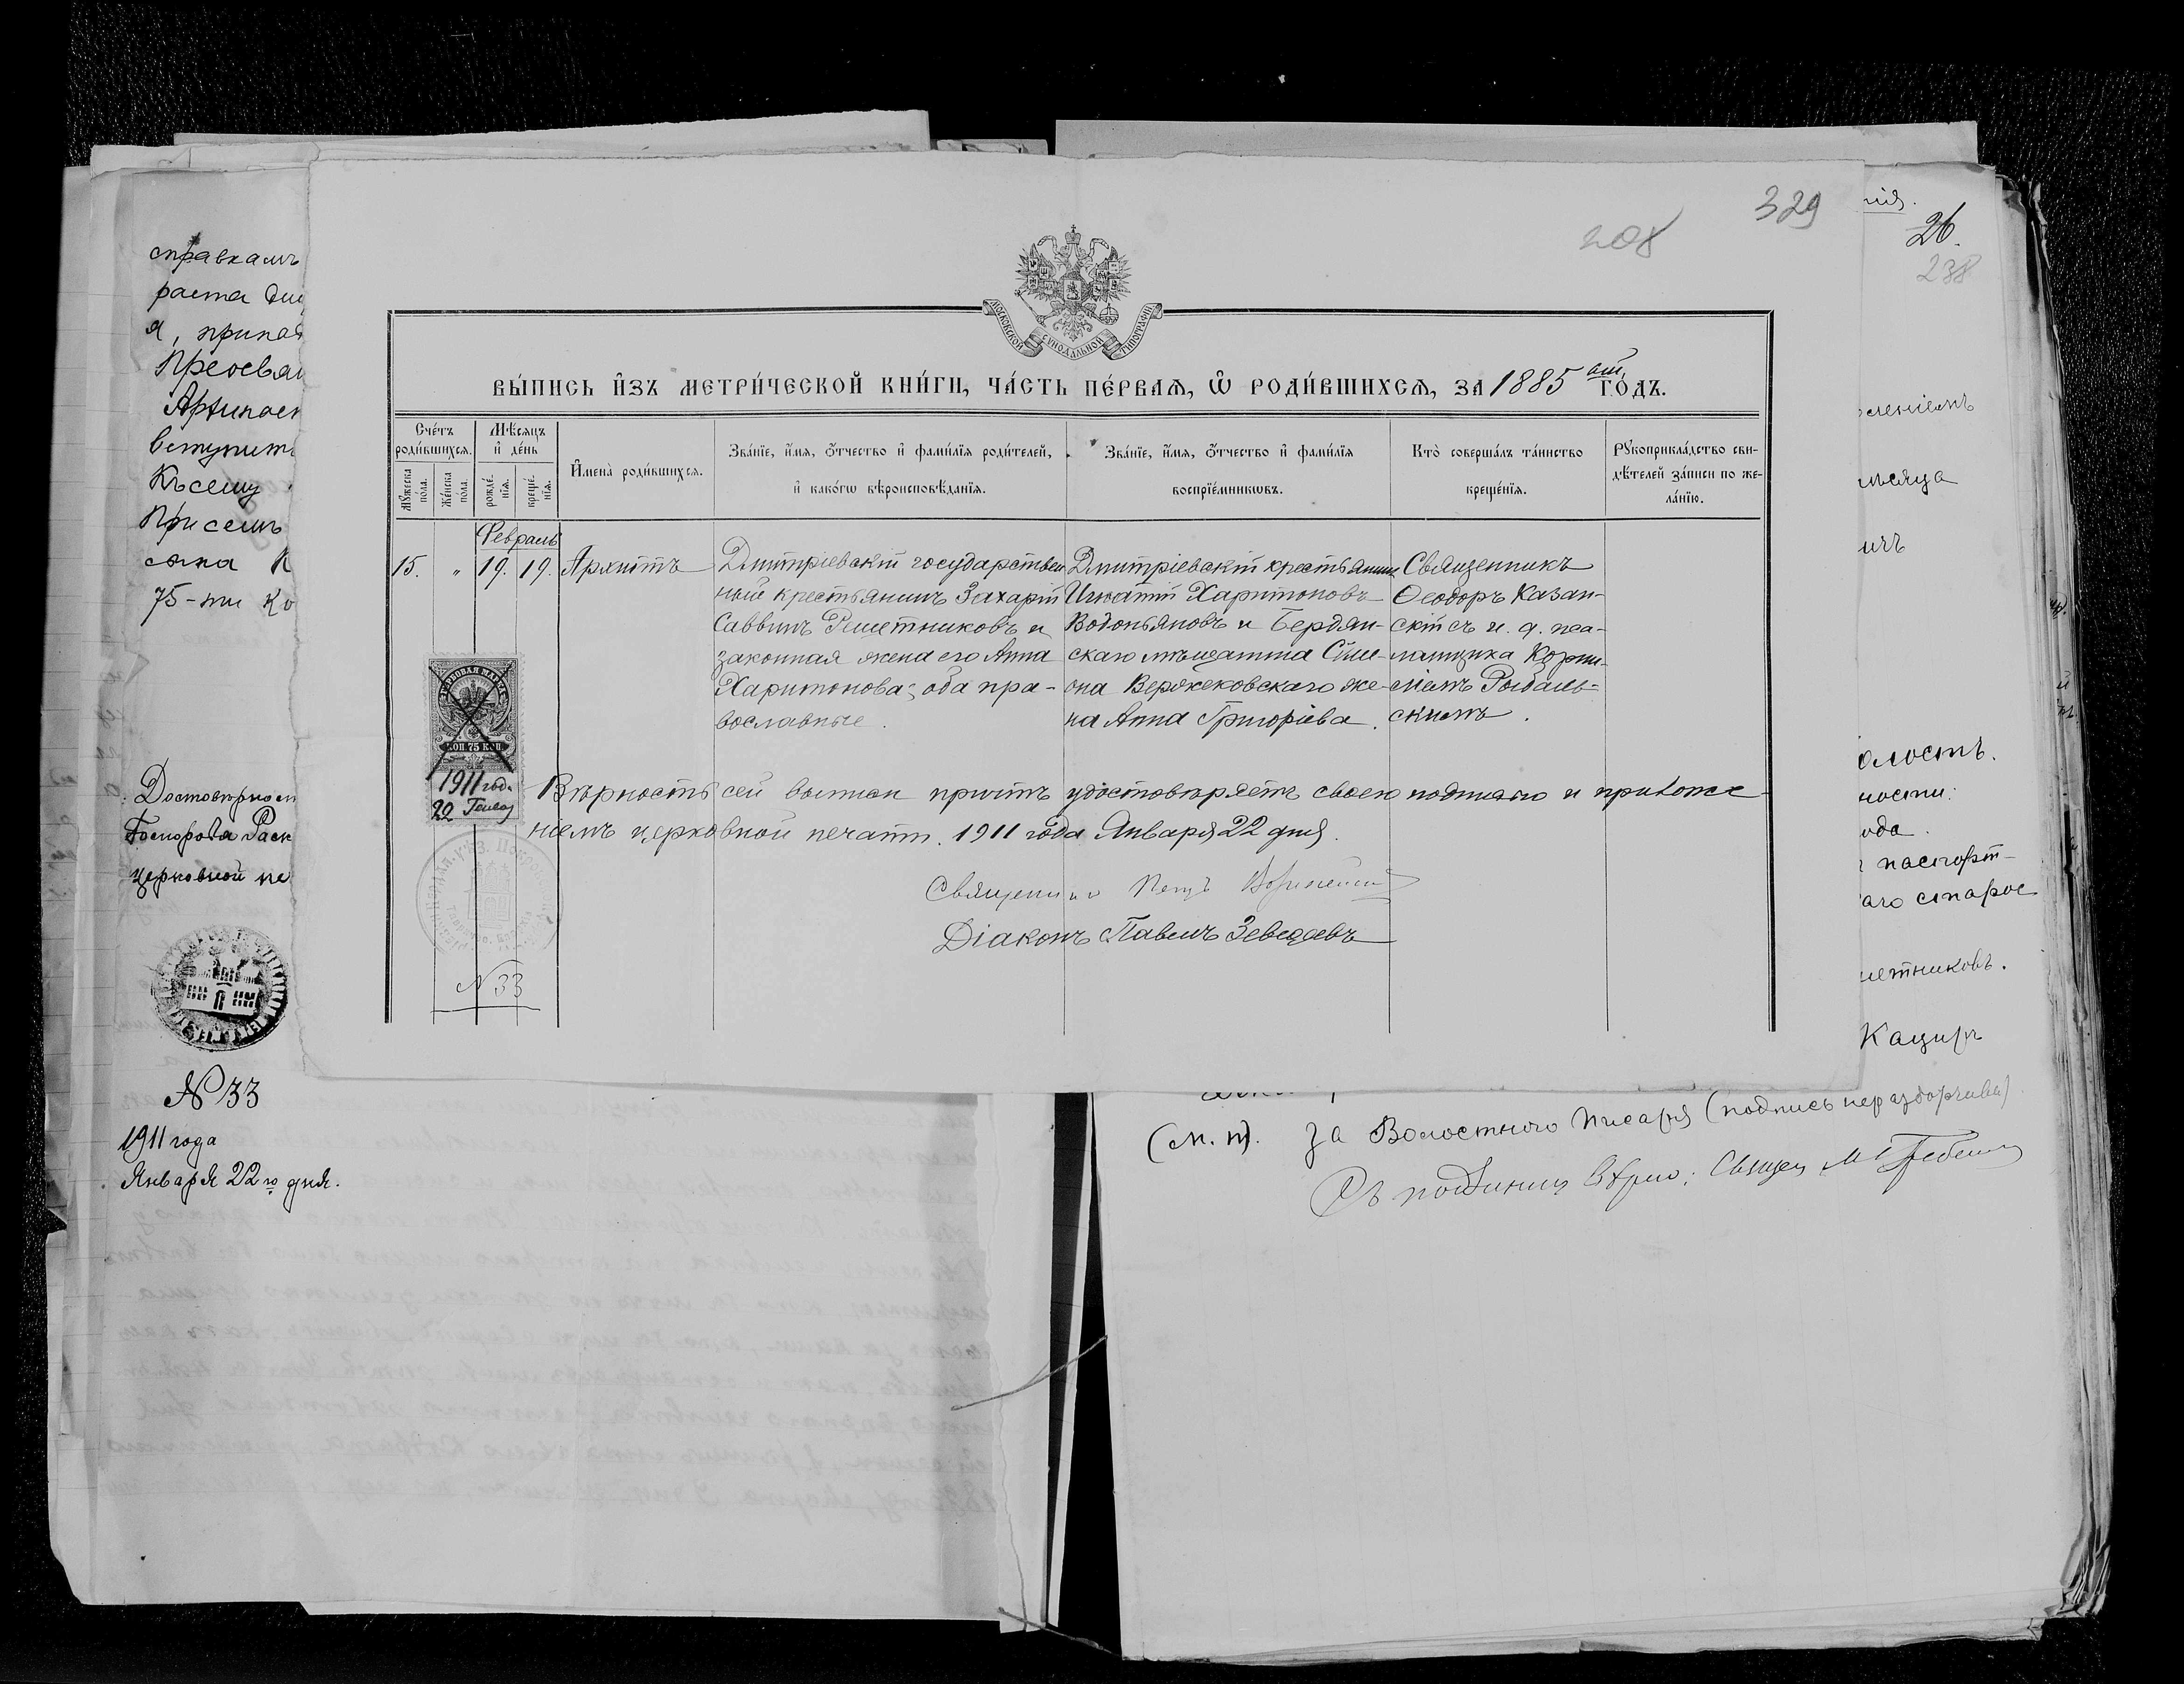 329
208
МОСКОВСКОЙ СѴНОДАЛЬНОЙ ТИПОГРАФІИ
ВЫ́ПИСЬ И҆ЗЪ МЕТРИ́ЧЕСКОЙ КНИ́ГИ, ЧА́СТЬ ПЕ́РВАЯ, Ѡ҆ РОДИ́ВШИХСЯ, ЗА 1885 ый ГО́ДЪ.
Сче́тъ роди́вшихся.
Му́жеска пола.
Же́нска пола.
Мѣ́сяцъ и҆ де́нь
рожде́нїя.
креще́нїя.
И҆мена̀ роди́вшихся.
Зва́нїе, и҆́мя, ѻ҆́тчество и҆ фами́лїя роди́телей,
и҆ како́гѡ вѣроисповѣ́данїя.
Зва́нїе, и҆́мя, ѻ҆́тчество и҆ фами́лїя
воспрїе́мниковъ.
Кто̀ соверша́лъ та́инство
креще́нїя.
Рꙋкоприкла́дство сви-
дѣ́телей за́писи по же-
ла́нїю.
Февраль
15.
„
19.
19.
Архиппъ
Дмитріевскій государствен
ный крестьянинъ Захарій
Саввинъ Решетниковъ и
законная жена его Анна
Харитонова; оба пра-
вославные.
Дмитріевскій крестьянин
Игнатій Харитоновъ
Водопьяновъ и Бердян-
скаго мѣщанина Симе-
она Вержековскаго же-
на Анна Григоріева.
Священникъ
Ѳеодоръ Казан-
скій съ и. д. пса-
ломщика Корни-
ліемъ Рыбаль-
скимъ.
КОП. 75 КОП.
1911 год.
22 Генвар
Вѣрность сей выписи причтъ удостовѣряетъ своею подписью и приложе-
ніемъ церковной печати. 1911 года Января 22 дня.
Священникъ Петръ
Діаконъ Павелъ Зеведеевъ
N 33
справкамъ
раста
я, припад
Преосвя
Архипаст
вступить
Къ сему
При семъ
75-ти ко
Достовѣрност
Господа Раск
церковной пе
N 33
1911 года
Января 22 го дня.
нія.
26.
238
мѣсяца
ности:
ода.
паспорт-
аго старос
шетниковъ.
Кацырь
(М. П). За Волостного Писаря (подпись неразборчива)
Съ подлинн вѣрно: Священ